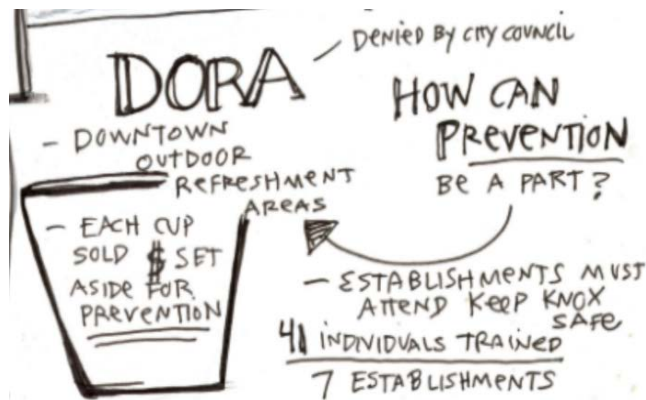 DORA
DENIED BY CITY COUNCIL
- DOWNTOWN
OUTDOOR
REFRESHMENT
AREAS
- EACH CUP
SOLD $ SET
ASIDE FOR
PREVENTION
HOW CAN
PREVENTION
BE A PART?
- ESTABLISHMENTS MUST
ATTEND KEEP KNOX
SAFE
41 INDIVIDUALS TRAINED
7 ESTABLISHMENTS